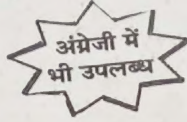 अंग्रेजी में
भी उपलब्ध